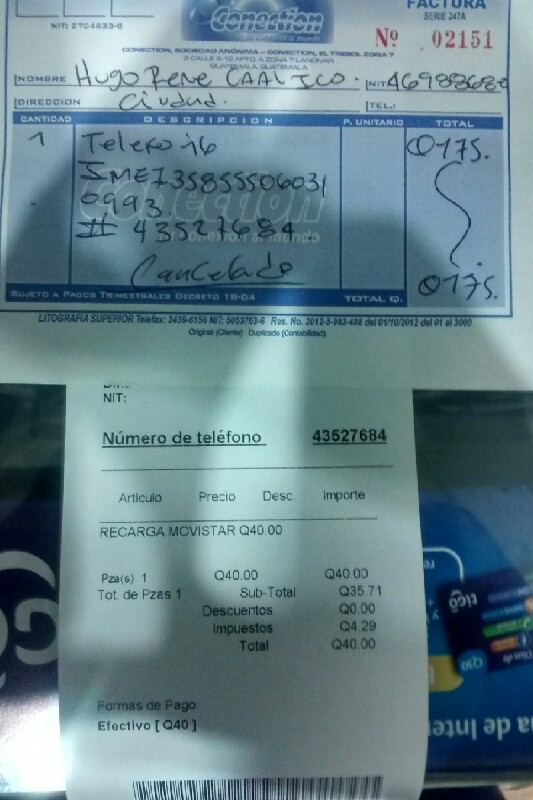 NIT: 2704833-8
Conection
FACTURA
SERIE 247A
Nº 02151
CONECTION, SOCIEDAD ANÓNIMA - CONECTION, EL TREBOL ZONA 7
GUATEMALA, GUATEMALA
NOMBRE Hugo Rene CAAL ICO. NIT
DIRECCION Ciudad. TEL.:
CANTIDAD DESCRIPCION P. UNITARIO TOTAL
1 Q175.
0993
# 43527684
Cancelado
Q175.
SUJETO A PAGOS TRIMESTRALES DECRETO 18-04 TOTAL Q.
LITOGRAFIA SUPERIOR Telefax: 2439-6156 NIT: 5053763-6 Res. No. 2012-5-983-488 del 01/10/2012 del 01 al 3000
Original (Cliente) Duplicado (Contabilidad)
NIT:
Número de teléfono 43527684
Articulo Precio Desc. Importe
RECARGA MOVISTAR Q40.00
Pza(s) 1 Q40.00 Q40.00
Tot. de Pzas 1 Sub-Total Q35.71
Descuentos Q0.00
Impuestos Q4.29
Total Q40.00
Formas de Pago:
Efectivo [ Q40 ]
tigo
a de Inter